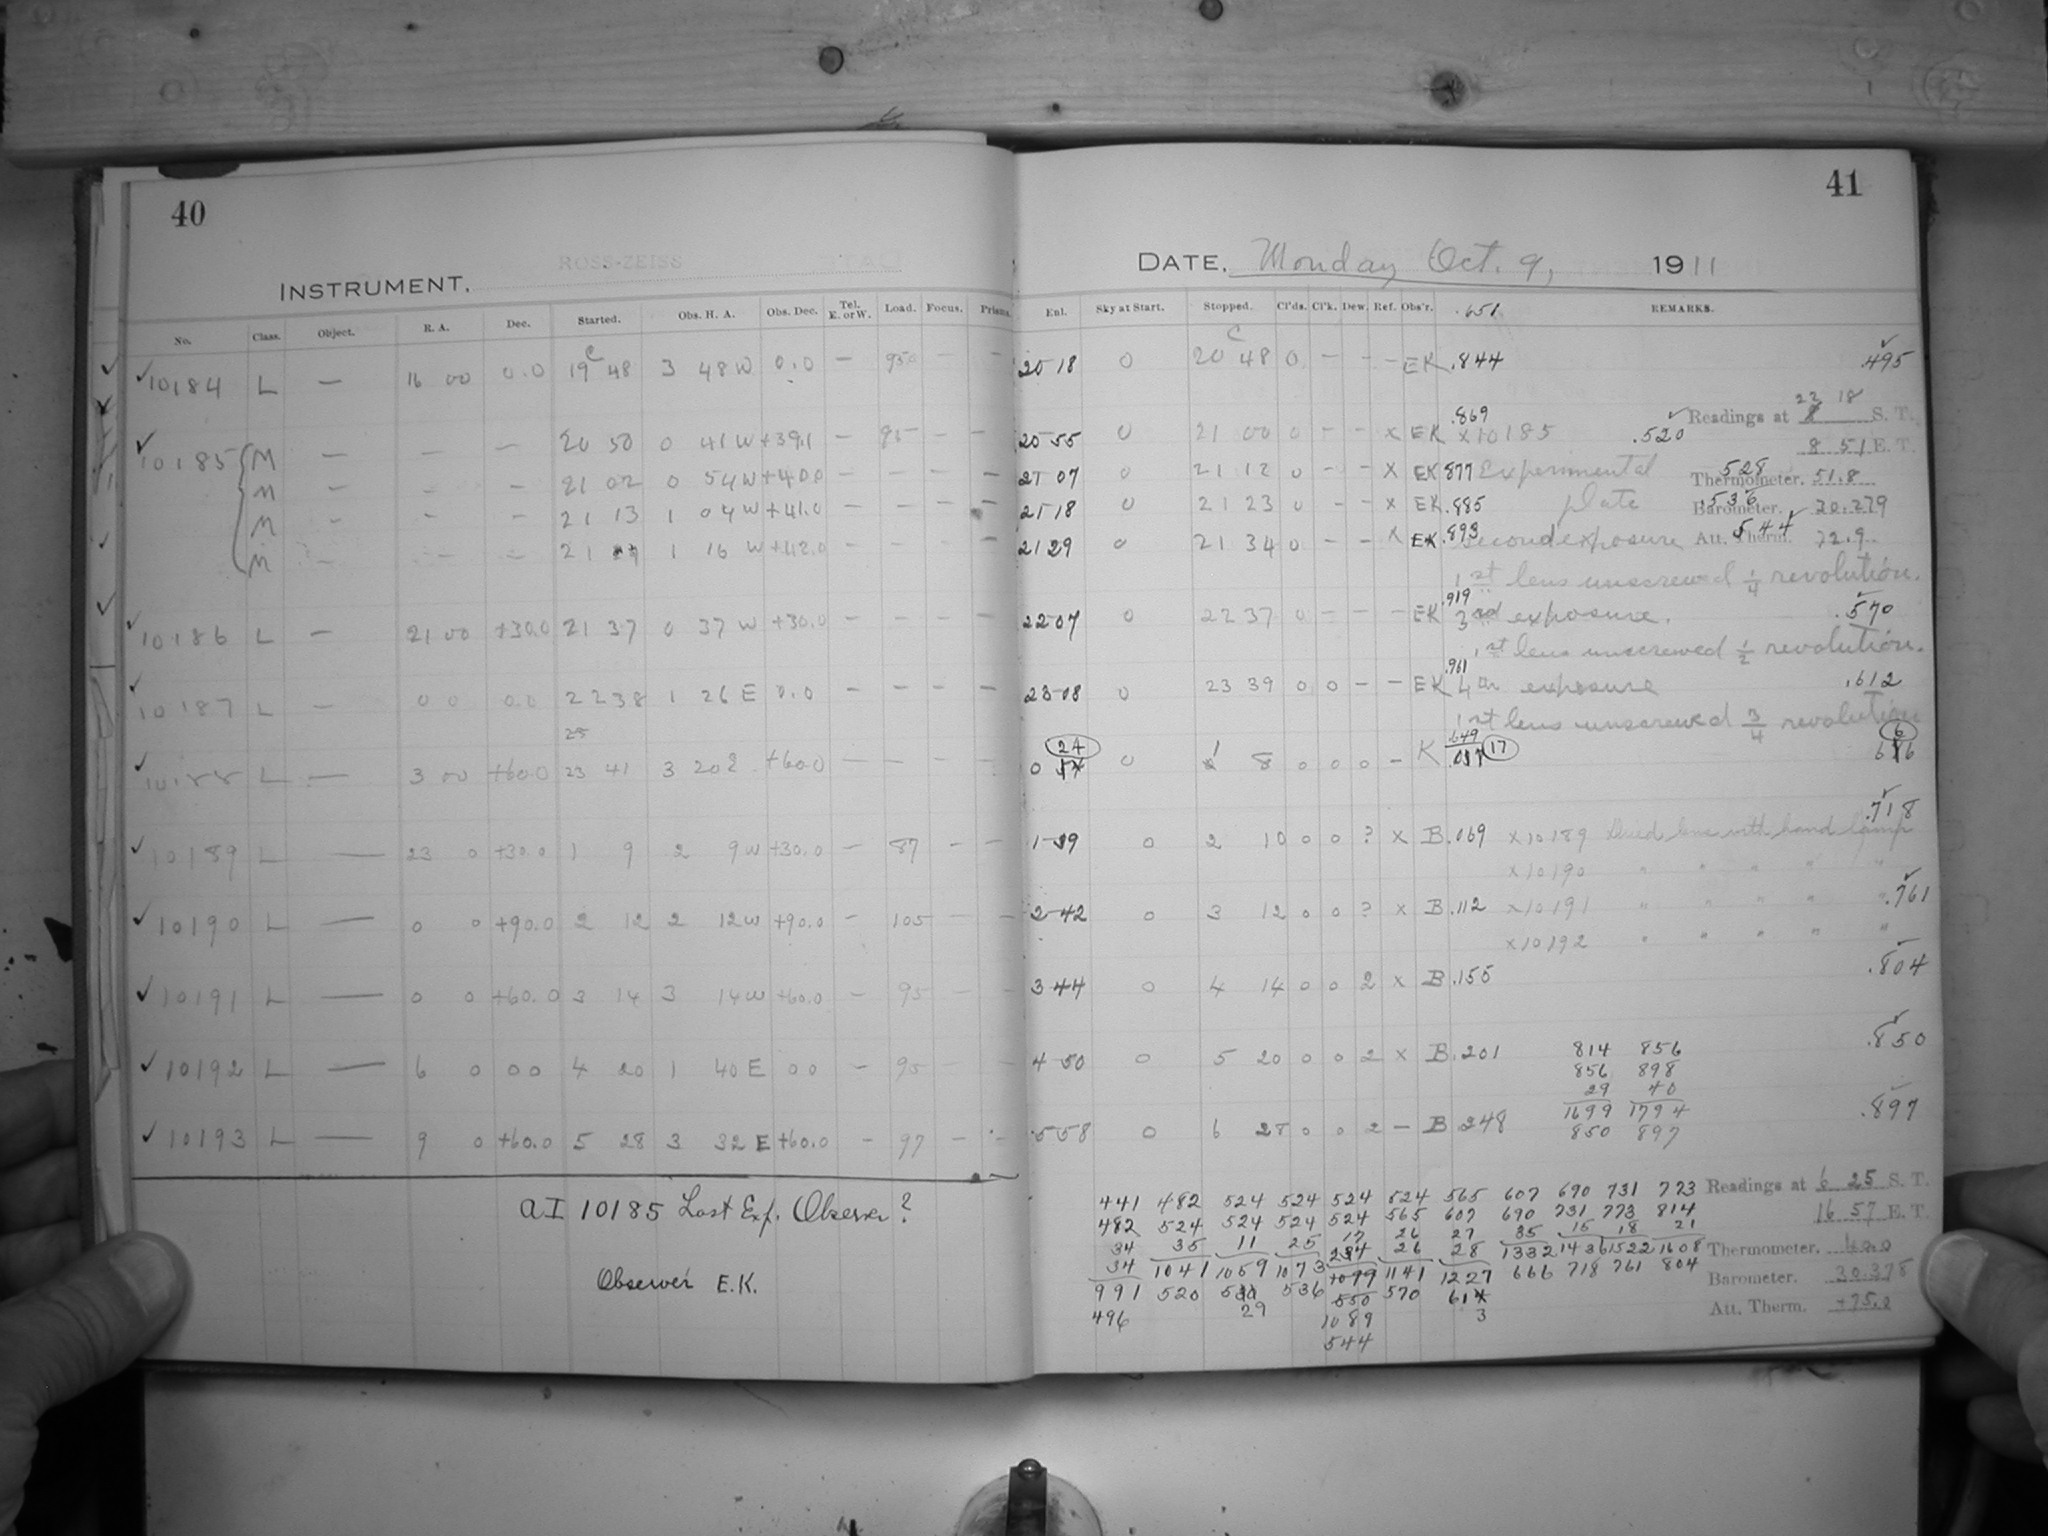 40
INSTRUMENT. ROSS-ZEISS
No. Class. Object. R. A. Dec. Started. Obs. H. A. Obs. Dec. Tel. E. or W. Load. Focus. Prisms.
✓ 10184 L — 16 00 0.0 19 48 3 48 W 0.0 — 950 — —
✓ 10185 M — — — 20 50 0 41 W +39.1 — 95 — —
M — — — 21 02 0 54 W +40.0 — — — —
M — — — 21 13 1 04 W +41.0 — — — —
M — — — 21 1 16 W +42.0 — — — —
10186 L — 21 00 +30.0 21 37 0 37 W +30.0 — — — —
✓ 10187 L — 0 0 0.0 22 38 1 26 E 0.0 — — — —
✓ 10188 L — 3 00 +60.0 23 41 3 20 +60.0 — — — —
✓ 10189 L — 23 0 +30.0 1 9 2 9 W +30.0 — 87 — —
✓ 10190 L — 0 0 +90.0 2 12 2 12 W +90.0 — 105 — —
✓ 10191 L — 0 0 +60.0 3 14 3 14 W +60.0 — 95 — —
✓ 10192 L — 6 0 0 0 4 20 1 40 E 0 0 — 95
✓ 10193 L — 9 0 +60.0 5 28 3 32 E +60.0 — 97 — —
AI 10185 Last Exp. Observer?
Observer E.K.
41
DATE. Monday Oct. 9, 1911
Enl. Sky at Start. Stopped. Cl'ds. Cl'k. Dew. Ref. Obs'r. .651 REMARKS.
20 18 0 20 48 0 — — — EK .844 .495
.869 Readings at 22 18 S. T.
20 55 0 21 00 0 — — x EK x10185 .520
8 51 E. T.
21 07 0 21 12 0 — — x EK .877 Experimental .528 Thermometer. 51.8
21 18 0 21 23 0 — — x EK .885 plate .536 Barometer. 30.279
21 29 0 21 34 0 — — x EK .893 Second exposure .544 Att. Therm. 72.9
1st lens unscrewed 1/4 revolution.
22 07 0 22 37 0 — — — EK .919 3rd exposure. .570
1st lens unscrewed 1/2 revolution.
23 08 0 23 39 0 0 — — EK .961 4th exposure .612
1st lens unscrewed 3/4 revolution
0 24 0 1 8 0 0 0 — K .649 17 6
.718
1 39 0 2 10 0 0 ? x B .069 x10189 Dried lens with hand lamp
x10190 " " " " "
2 42 0 3 12 0 0 ? x B .112 x10191 " " " " " .761
x10192 " " " " "
3 44 0 4 14 0 0 2 x B .155 .804
4 50 0 5 20 0 0 2 x B .201 .850
814 856
856 898
29 40
1699 1794
850 897
5 58 0 6 28 0 0 2 — B .248 .897
441 482 524 524 524 524 565 607 690 731 773
482 524 524 524 524 565 607 690 731 773 814
34 35 11 25 17 26 27 35 15 18 21
34 1041 1059 1073 26 28 1332 1436 1522 1608
991 520 536 1099 1141 1227 666 718 761 804
496 29 550 570 3
1089
544
Readings at 6 25 S. T.
16 57 E. T.
Thermometer.
Barometer. 30.378
Att. Therm. +75.0